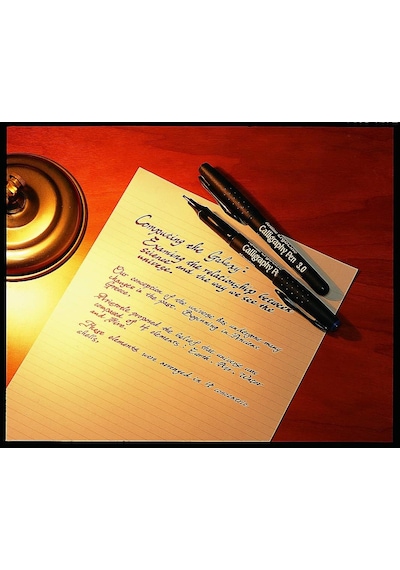 Composing the Galaxy:
Examine the relationship between
sciences and the way we see the
universe
Our conception of the universe has undergone many
changes in the past. Beginning in Ancient
Greece,
Aristotle proposed the belief the universe was
composed of 4 elements. Earth, Air, Water
and Fire.
These elements were arranged in
shells,
Calligraphy Pen 3.0
Calligraphy P